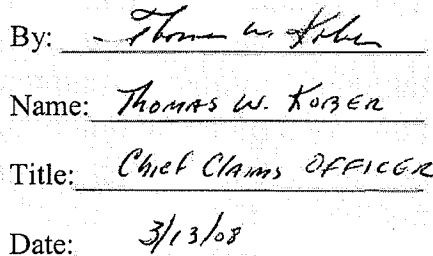 By: Thomas W. Kober
Name: THOMAS W. KOBER
Title: Chief Claims OFFICER
Date: 3/13/08